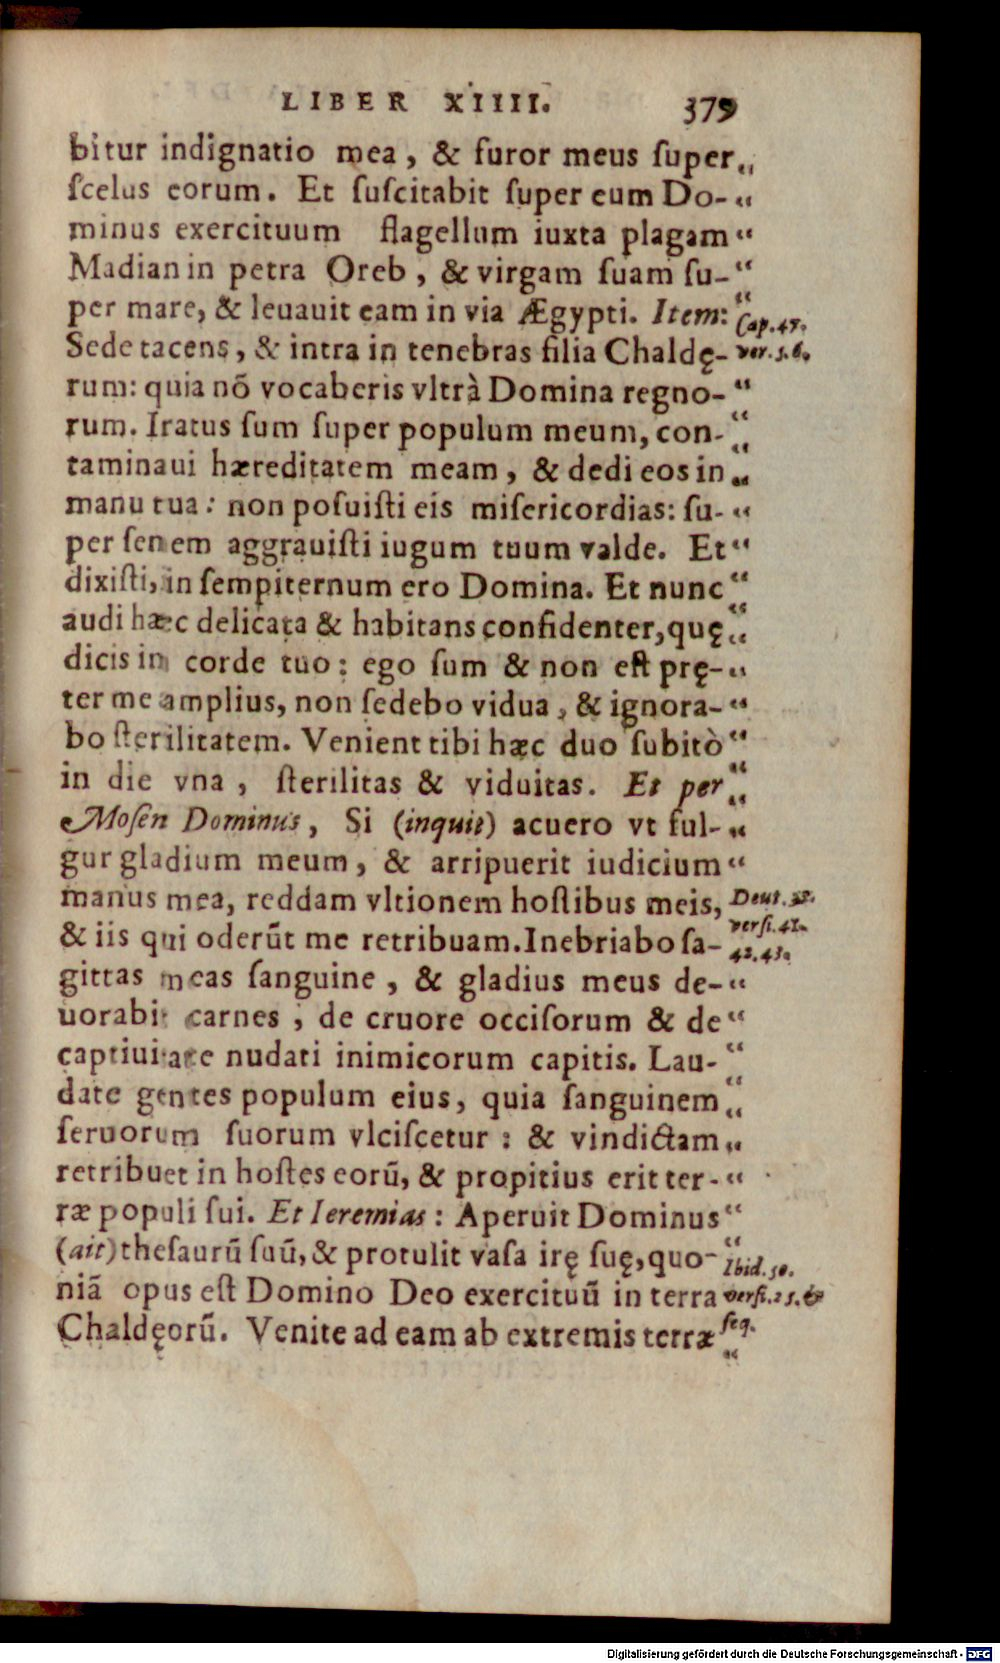 LIBER XIIII. 379
bitur indignatio mea, & furor meus ſuper
ſcelus eorum. Et ſuſcitabit ſuper eum Do-
minus exercituum flagellum iuxta plagam
Madian in petra Oreb, & virgam ſuam ſu-
per mare, & leuauit eam in via Ægypti. Item:
Cap. 47.
Sede tacens, & intra in tenebras filia Chaldę-
ver. 5. 6.
rum: quia nõ vocaberis vltrà Domina regno-
rum. Iratus ſum ſuper populum meum, con-
taminaui hæreditatem meam, & dedi eos in
manu tua: non poſuiſti eis miſericordias: ſu-
per ſenem aggrauiſti iugum tuum valde. Et
dixiſti, in ſempiternum ero Domina. Et nunc
audi hæc delicata & habitans confidenter, quę
dicis in corde tuo: ego ſum & non eſt prę-
ter me amplius, non ſedebo vidua, & ignora-
bo ſterilitatem. Venient tibi hæc duo ſubitò
in die vna, ſterilitas & viduitas. Et per
Moſen Dominus, Si (inquit) acuero vt ful-
gur gladium meum, & arripuerit iudicium
manus mea, reddam vltionem hoſtibus meis,
Deut. 32.
& iis qui oderũt me retribuam. Inebriabo ſa-
verſi. 41.
42. 43.
gittas meas ſanguine, & gladius meus de-
uorabit carnes, de cruore occiſorum & de
captiuitate nudati inimicorum capitis. Lau-
date gentes populum eius, quia ſanguinem
ſeruorum ſuorum vlciſcetur: & vindictam
retribuet in hoſtes eorũ, & propitius erit ter-
ræ populi ſui. Et Ieremias: Aperuit Dominus
(ait) theſaurũ ſuũ, & protulit vaſa irę ſuę, quo-
Ibid. 50.
niã opus eſt Domino Deo exercituũ in terra
verſi. 25. &
Chaldęorũ. Venite ad eam ab extremis terræ
ſeq.
Digitalisierung gefördert durch die Deutsche Forschungsgemeinschaft - DFG